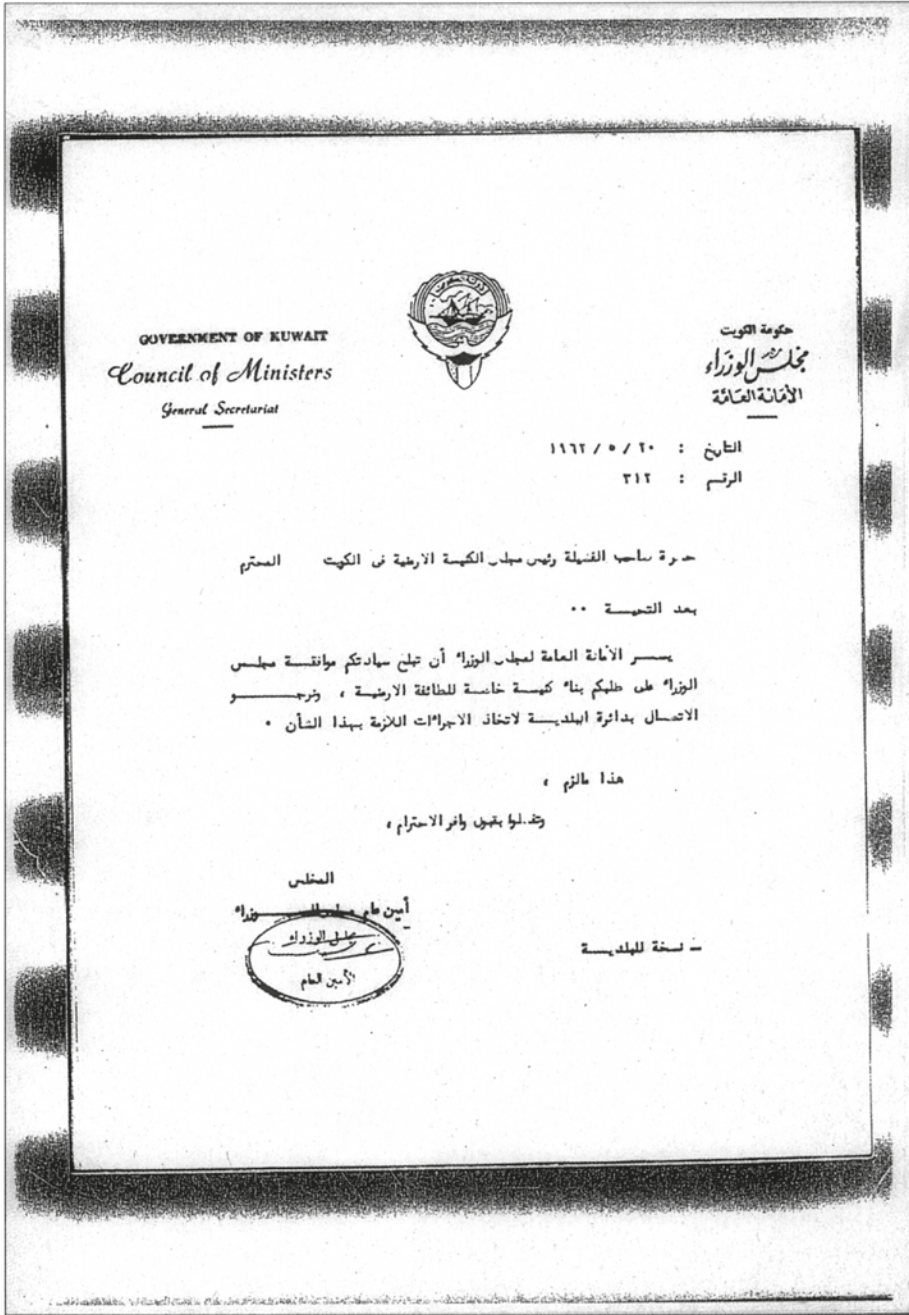 GOVERNMENT OF KUWAIT
Council of Ministers
General Secretariat
حكومة الكويت
مجلس الوزراء
الأمانة العامة
التاريخ : ٢٠ / ٥ / ١٩٦٢
الرقم : ٣١٢
حضرة صاحب الفضيلة رئيس مجلس الكنيسة الارمنية في الكويت المحترم
بعد التحيــــة ٠٠
يســـر الأمانة العامة لمجلس الوزراء أن تبلغ سيادتكم موافقــــة مجلــس
الوزراء على طلبكم بناء كنيسة خاصـة للطائفة الارمنيـة ، ونرجـــــو
الاتصــال بدائرة البلديـــة لاتخاذ الاجراءات اللازمة بهذا الشأن ٠
هذا مالزم ،
وتفضلوا بقبول وافر الاحترام ،
المخلص
أمين عام مجلس الـــــوزراء
مجلس الوزراء
الأمين العام
– نسخة للبلديــــة